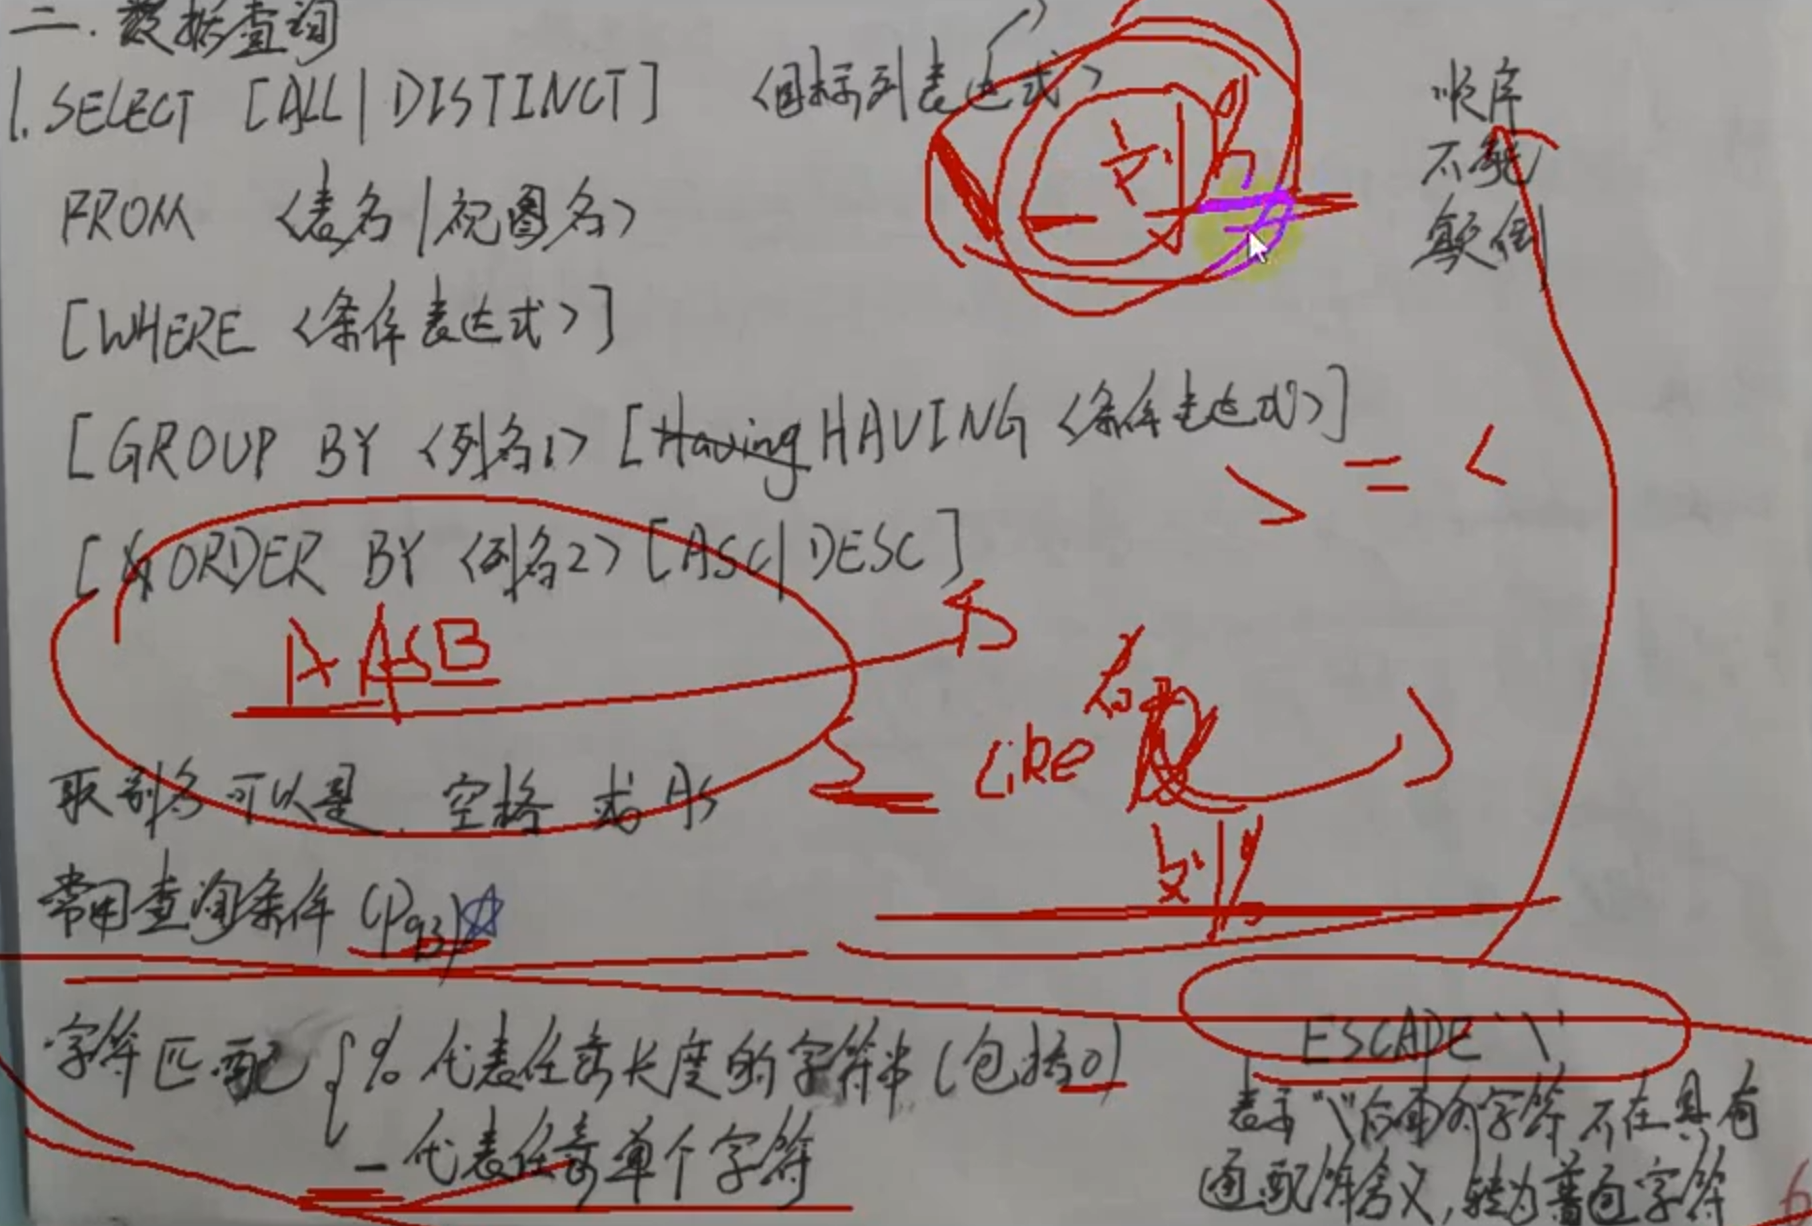 二. 数据查询
1. SELECT [ALL | DISTINCT] 〈目标列表达式〉
FROM 〈表名 | 视图名〉
[WHERE 〈条件表达式〉]
[GROUP BY 〈列名1〉 [Having HAVING 〈条件表达式〉]
[ORDER BY 〈列名2〉 [ASC | DESC]
顺序
不能
颠倒
刘%
> = <
A AS B
Like
刘%
取别名可以是 空格 或 As
常用查询条件 (P93)☆
字符匹配 { % 代表任意长度的字符串 (包括0)
_ 代表任意单个字符
ESCAPE '\'
表示"\"后面的字符不在具有
通配符含义,转为普通字符
6